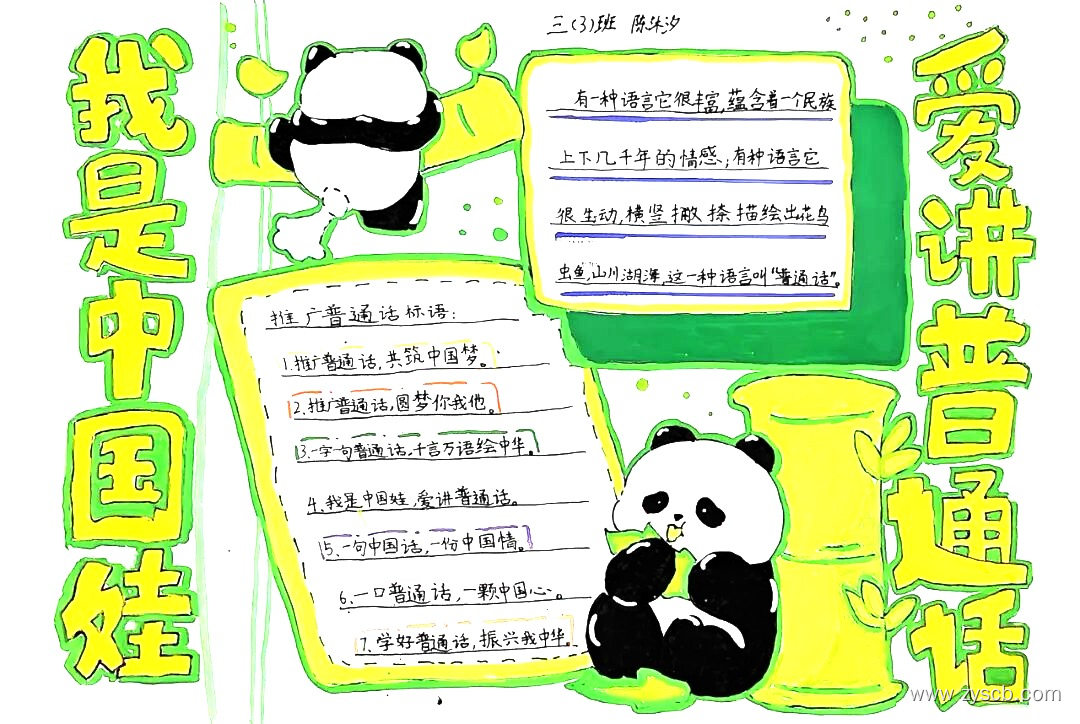 三(3)班 陈朱汐
我是中国娃
爱讲普通话
有一种语言它很丰富,蕴含着一个民族
上下几千年的情感,有种语言它
很生动,横竖撇捺描绘出花鸟
虫鱼,山川湖海,这一种语言叫“普通话”。
推广普通话标语:
1.推广普通话,共筑中国梦。
2.推广普通话,圆梦你我他。
3.一字一句普通话,千言万语绘中华。
4.我是中国娃,爱讲普通话。
5.一句中国话,一份中国情。
6.一口普通话,一颗中国心。
7.学好普通话,振兴我中华。
www.zyscb.com